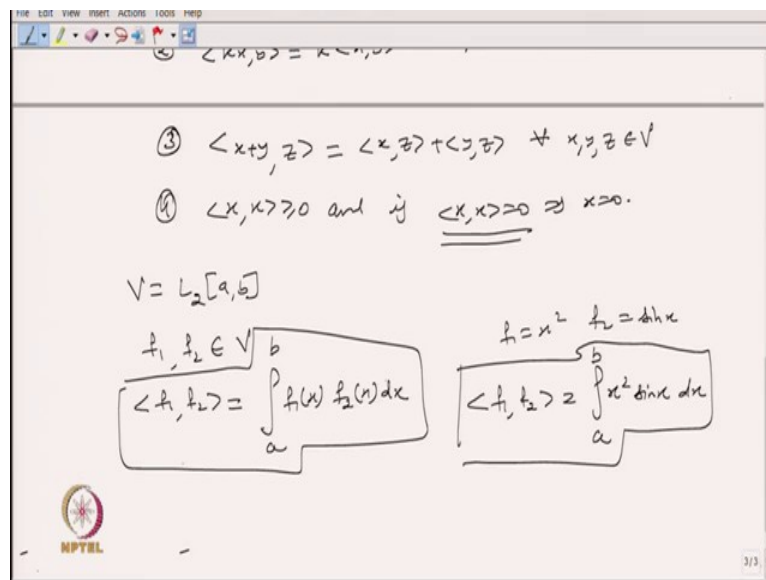 File Edit View Insert Actions Tools Help
③ <x+y, z> = <x,z>+<y,z> ∀ x,y,z ∈ V
④ <x,x>≥0 and if <x,x>=0 ⇒ x=0.
V = L₂[a,b]
f₁, f₂ ∈ V
<f₁, f₂> = ∫ₐᵇ f₁(x) f₂(x) dx
f₁=x² f₂=sinx
<f₁, f₂> = ∫ₐᵇ x² sinx dx
NPTEL
3/3